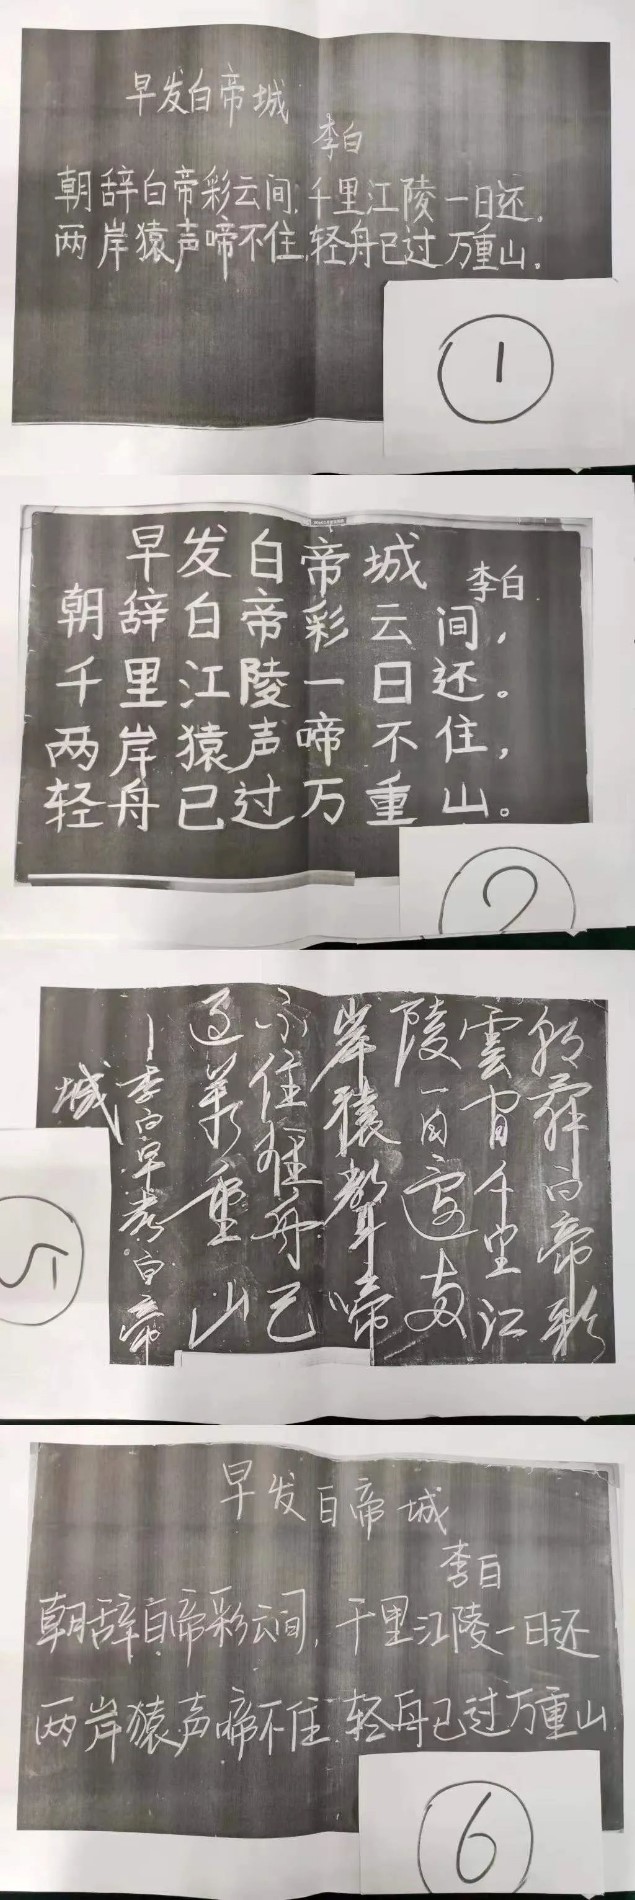 早发白帝城
李白
朝辞白帝彩云间,千里江陵一日还。
两岸猿声啼不住,轻舟已过万重山。
1
早发白帝城
李白
朝辞白帝彩云间,
千里江陵一日还。
两岸猿声啼不住,
轻舟已过万重山。
2
朝辞白帝彩
雲间千里江
陵一日還两
岸猿聲啼
不住轻舟已
过萬重山
李白早发白帝
城
5
早发白帝城
李白
朝辞白帝彩云间,千里江陵一日还
两岸猿声啼不住.轻舟已过万重山
6